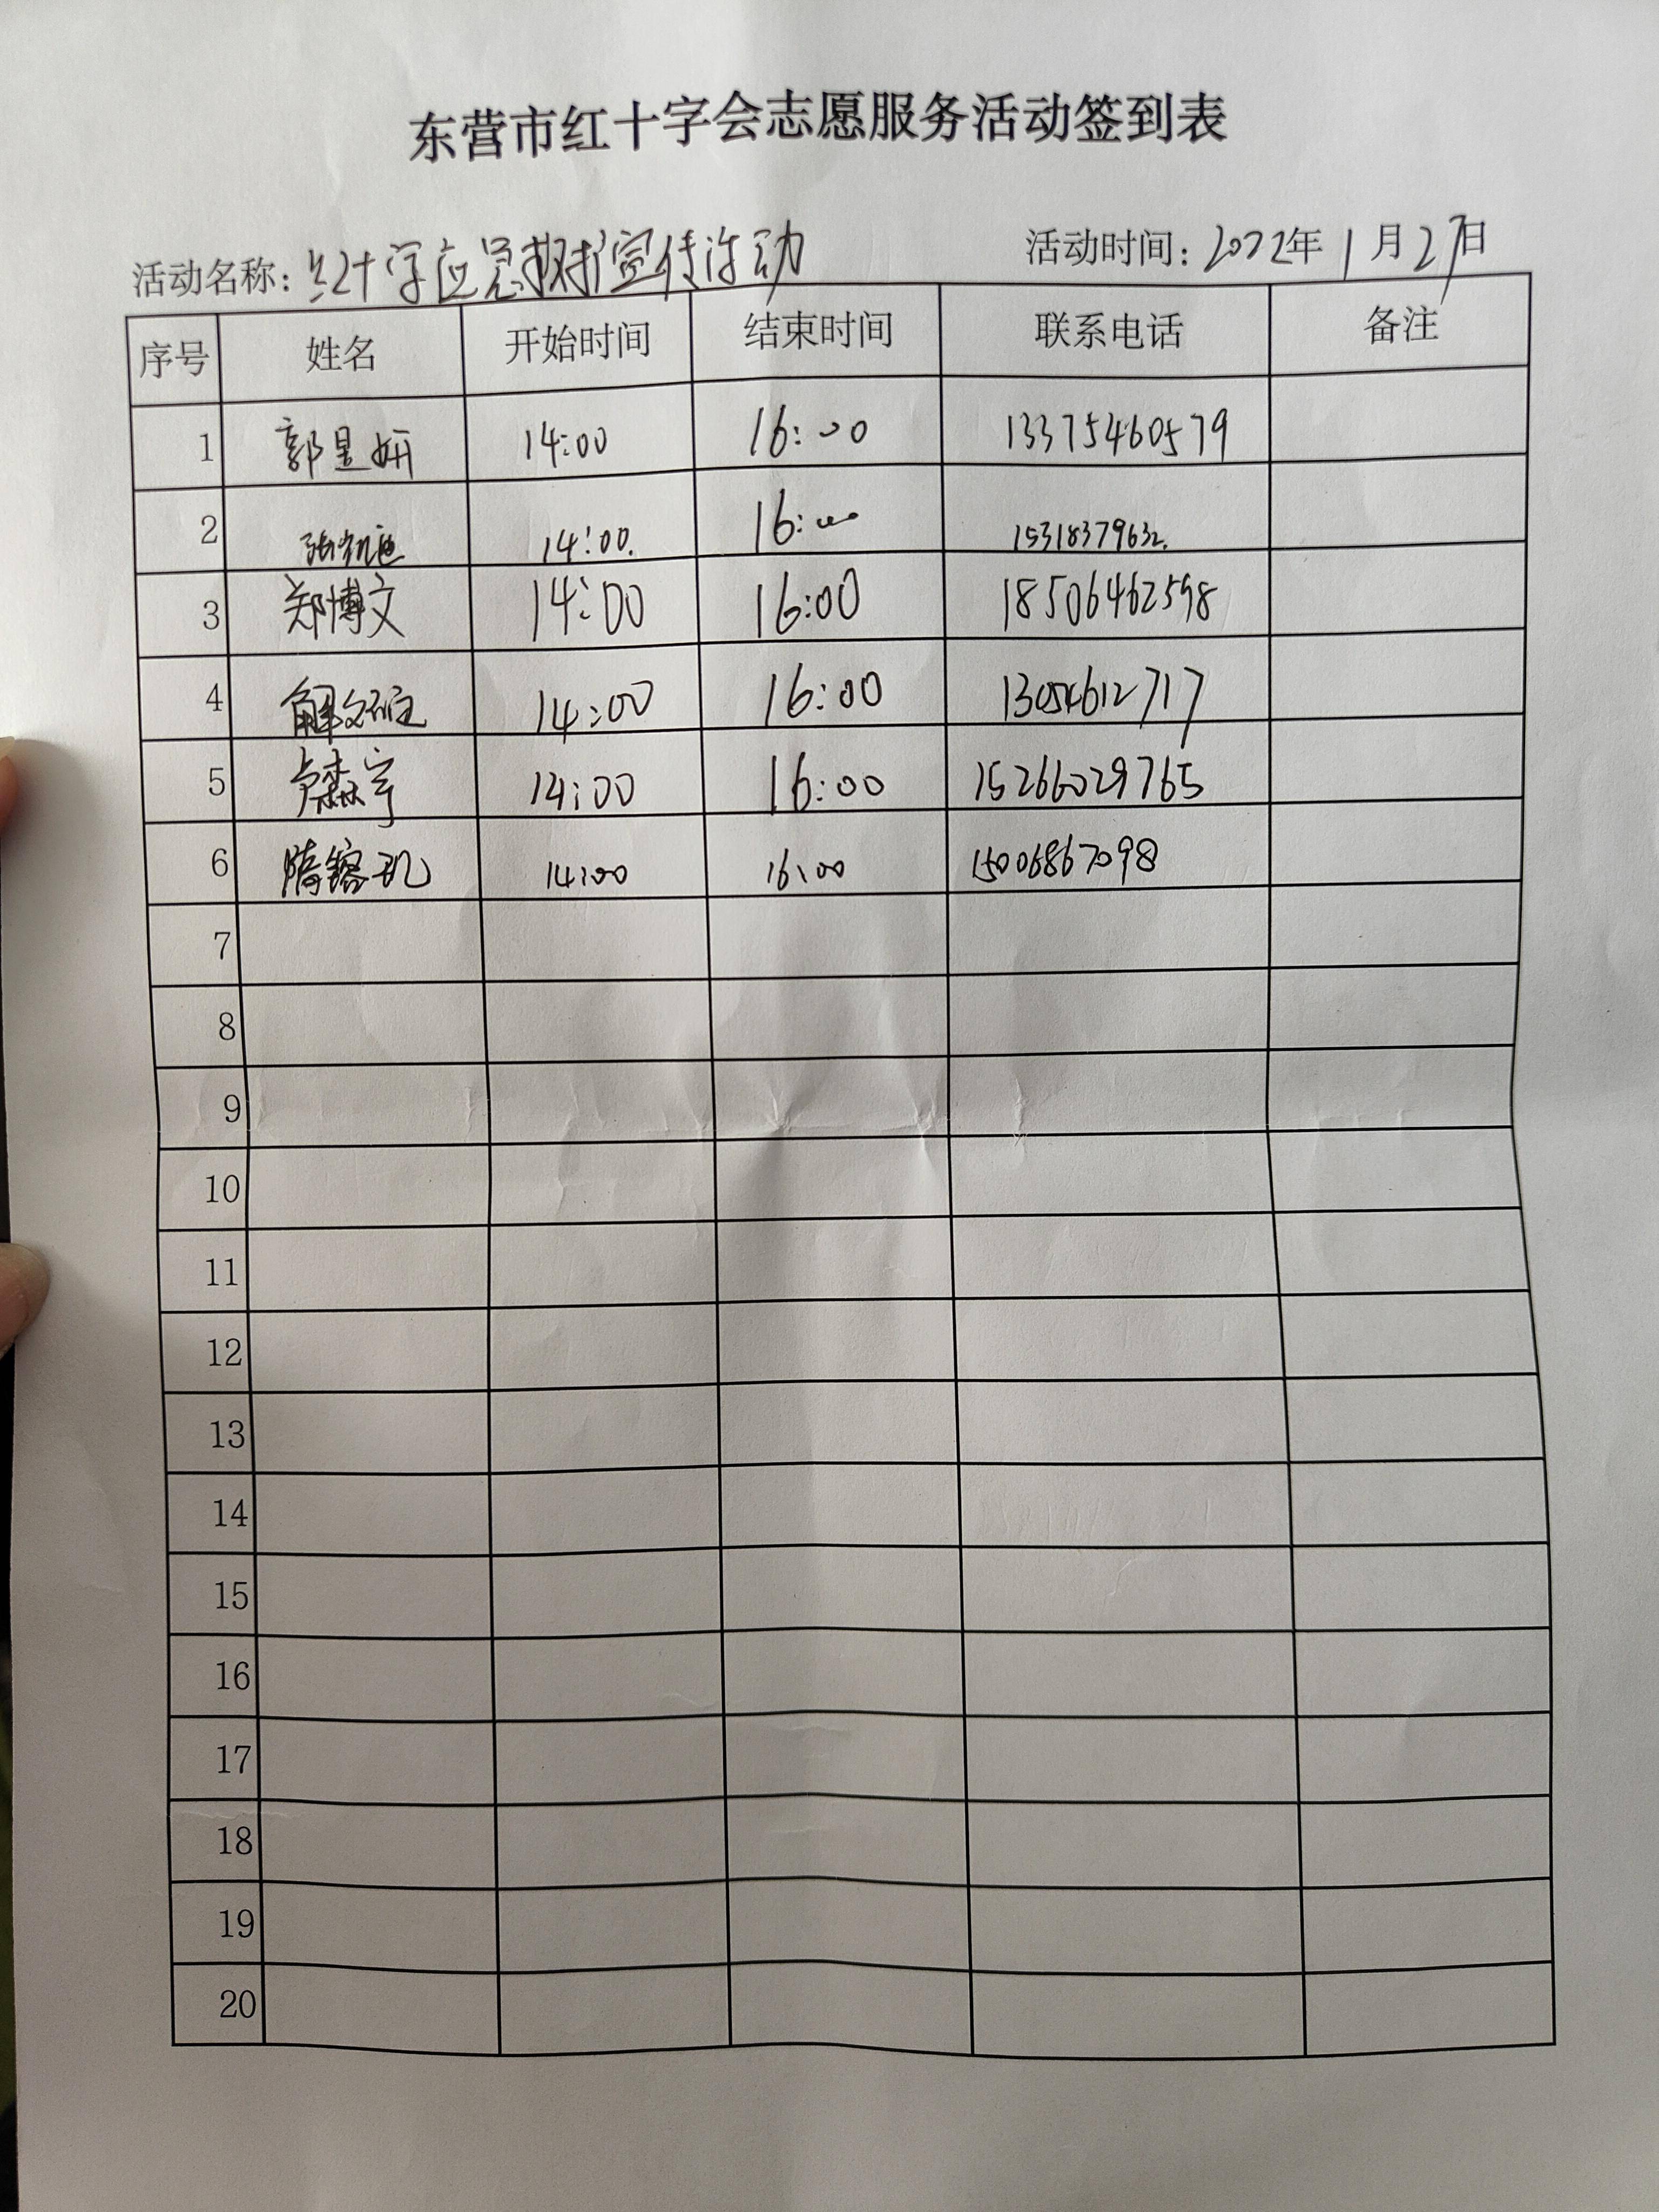 东营市红十字会志愿服务活动签到表
活动名称：红十字应急救护宣传活动 活动时间：2022年1月27日
序号 姓名 开始时间 结束时间 联系电话 备注
1 郭昱妍 14:00 16:00 13375460579
2 14:00. 16:00 15318379632.
3 郑博文 14:00 16:00 18506462598
4 解文 14:00 16:00 13054612717
5 卢森宇 14:00 16:00 15266029765
6 隋 玑 14:00 16:00 15006867098
7
8
9
10
11
12
13
14
15
16
17
18
19
20